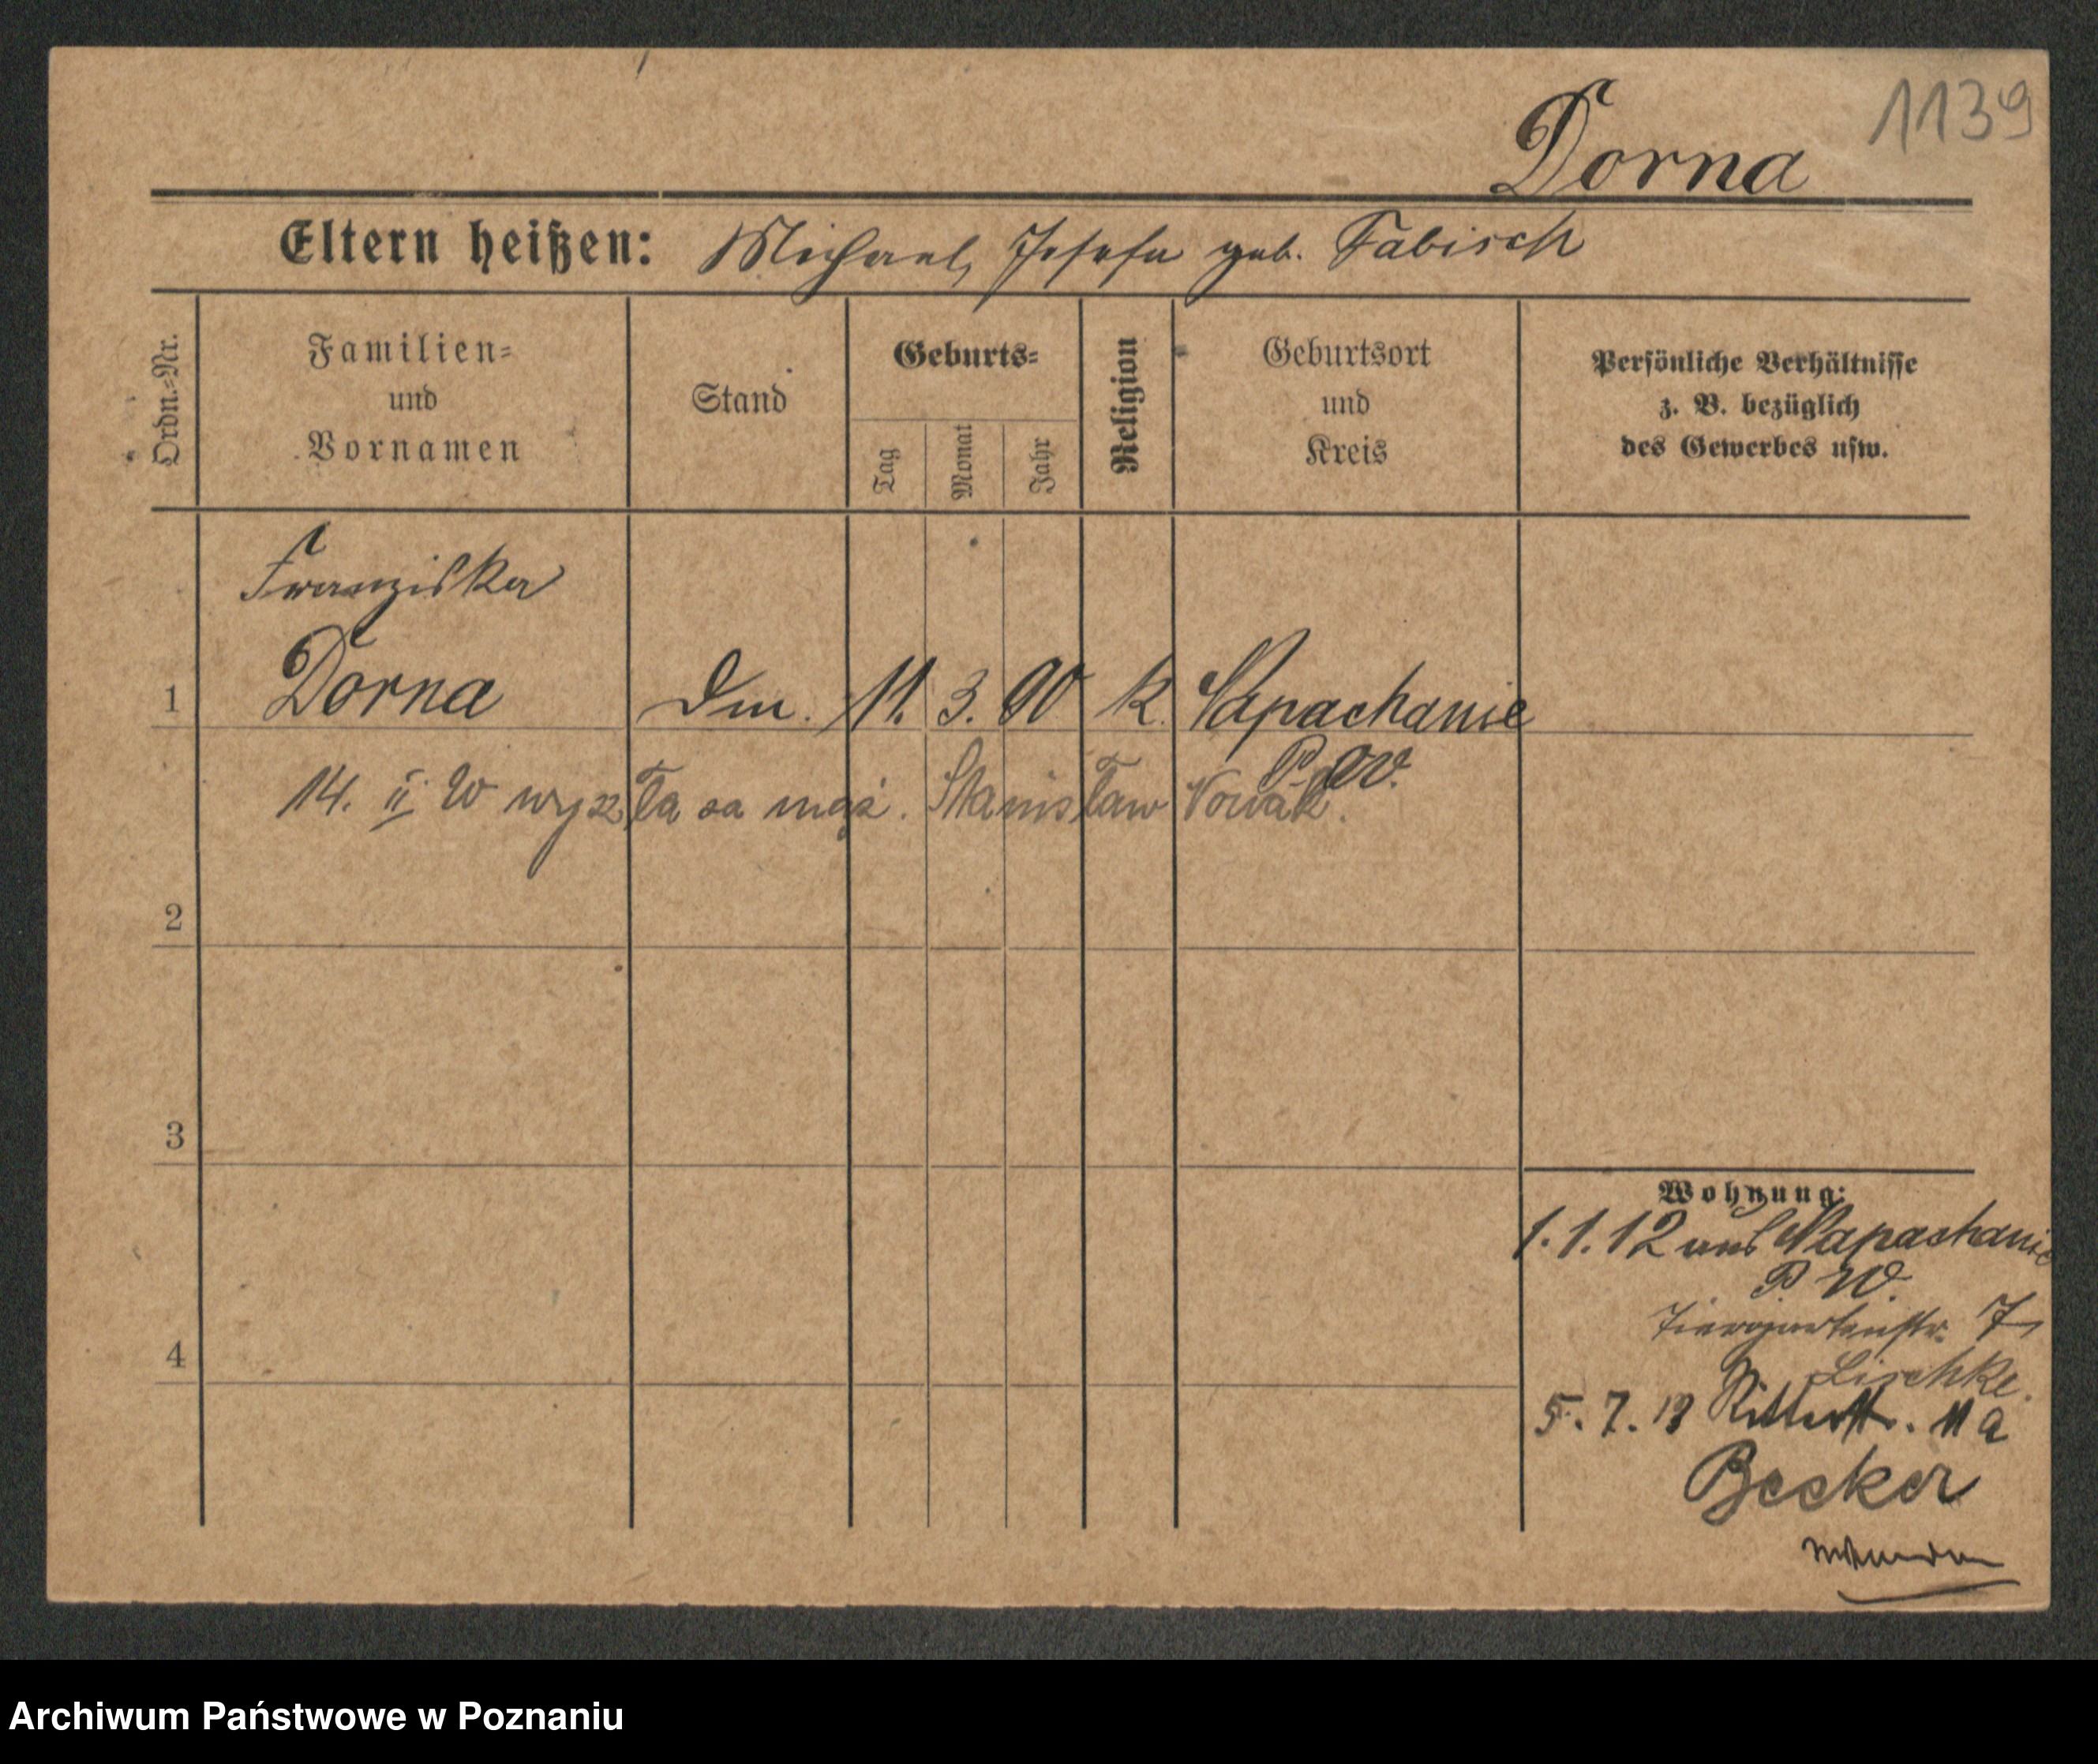 1139
Dorna
Eltern heißen: Michael, Josefa geb. Fabisch
Ordn.=Nr.
Familien=
und
Vornamen
Stand
Geburts=
Tag
Monat
Jahr
Religion
Geburtsort
und
Kreis
Persönliche Verhältnisse
z. B. bezüglich
des Gewerbes usw.
Franziska
1 Dorna Dm. 11. 3. 90 k. Napachanie
P. W.
14. II. 20 wyszła za mąż. Stanisław Nowak.
2
3
4
Wohnung:
1.1.12 aus Napachanie
P. W.
Tiergartenstr. 7
Lischke.
5.7.13 Ritterstr. 11a
Becker
Archiwum Państwowe w Poznaniu